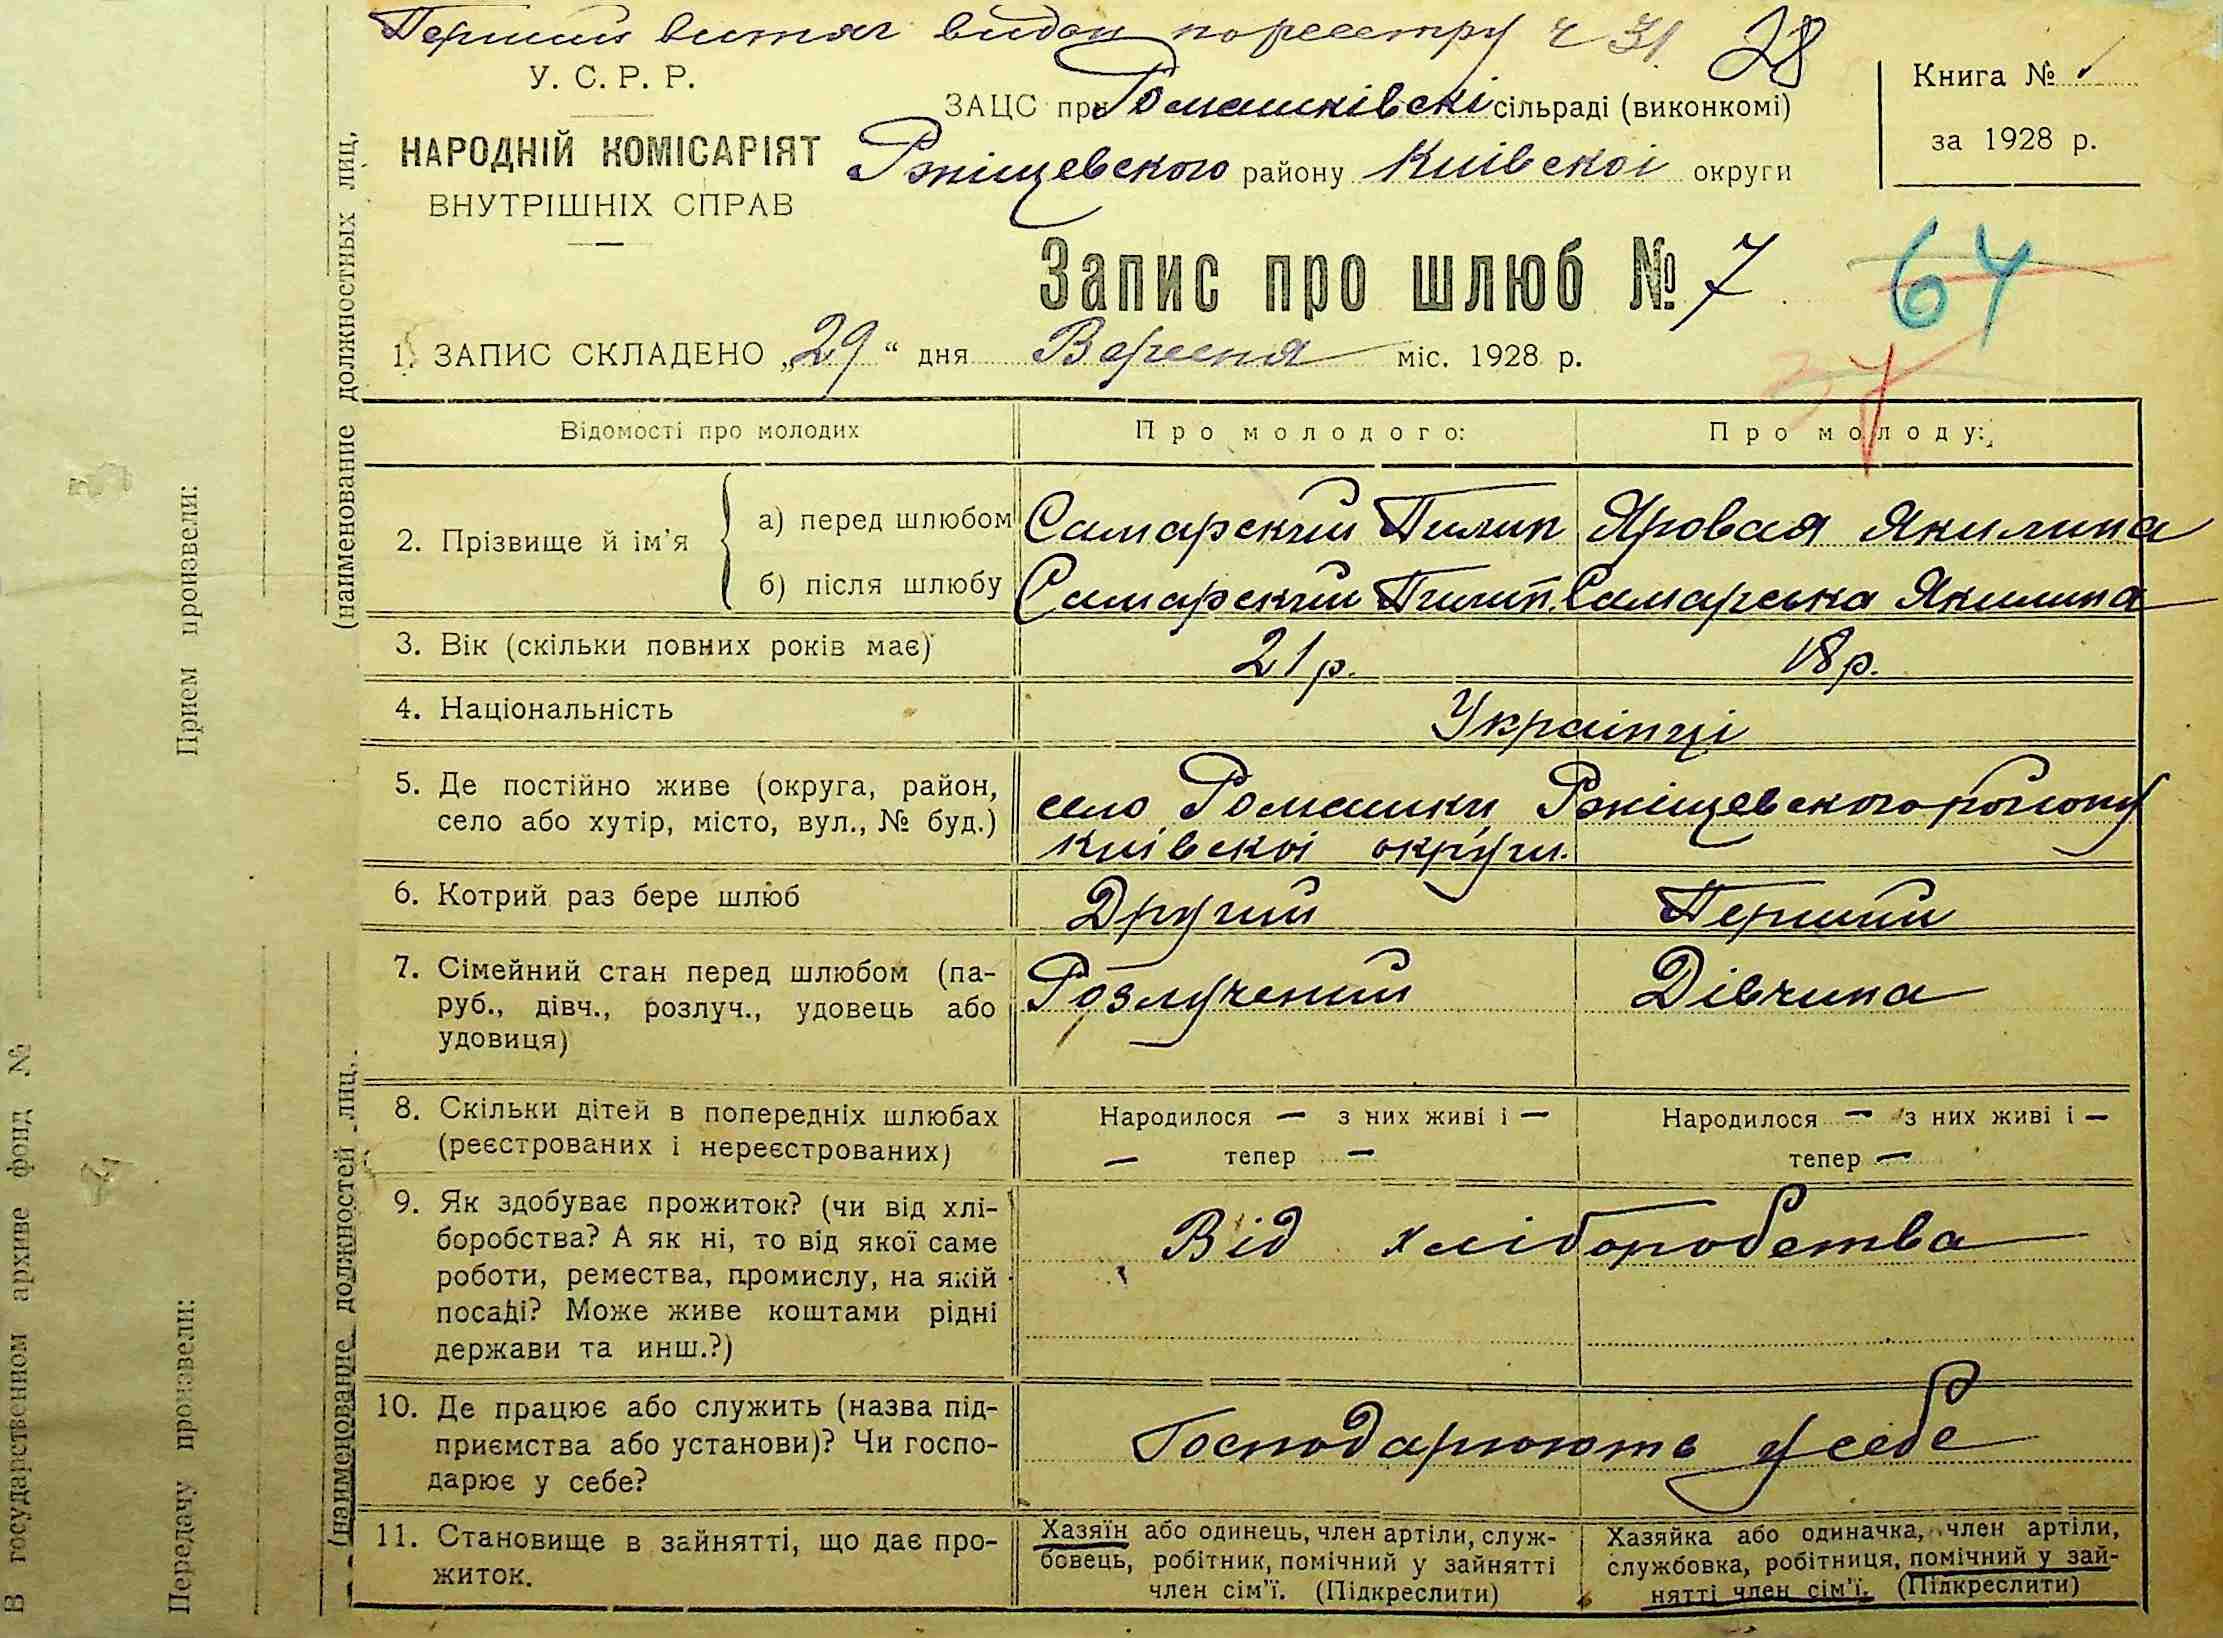 Перший витяг видан пореестру ч 31. 28
У. С. Р. Р.
НАРОДНІЙ КОМІСАРІЯТ
ВНУТРІШНІХ СПРАВ
ЗАЦС при Ромашківскі сільраді (виконкомі)
Ржіщевского району Київскоі округи
Книга № 1
за 1928 р.
Запис про шлюб № 7
64
37
1. ЗАПИС СКЛАДЕНО „29“ дня Вересня міс. 1928 р.
Відомості про молодих
Про молодого:
Про молоду:
2. Прізвище й ім'я
а) перед шлюбом Самарский Пилип Яровая Якилина
б) після шлюбу Самарский Пилип. Самарська Якилина
3. Вік (скільки повних років має) 21 р. 18 р.
4. Національність Украінці
5. Де постійно живе (округа, район,
село або хутір, місто, вул., № буд.)
село Ромашки Ржіщевского району
Київскоі округи.
6. Котрий раз бере шлюб Другий Перший
7. Сімейний стан перед шлюбом (па-
руб., дівч., розлуч., удовець або
удовиця)
Розлучений Дівчина
8. Скільки дітей в попередніх шлюбах
(реєстрованих і нереєстрованих)
Народилося — з них живі і —
— тепер —
Народилося — з них живі і —
тепер —
9. Як здобуває прожиток? (чи від хлі-
боробства? А як ні, то від якої саме
роботи, ремества, промислу, на якій
посаді? Може живе коштами рідні
держави та инш.?)
Від хліборобства
10. Де працює або служить (назва під-
приємства або установи)? Чи госпо-
дарює у себе?
Господарюють у себе
11. Становище в зайнятті, що дає про-
житок.
Хазяїн або одинець, член артіли, служ-
бовець, робітник, помічний у зайнятті
член сім'ї. (Підкреслити)
Хазяйка або одиначка, член артіли,
службовка, робітниця, помічний у зай-
нятті член сім'ї. (Підкреслити)
(наименование должностных лиц,
Прием произвели:
(наименование должностей лиц,
Передачу произвели:
В государственном архиве фонд №